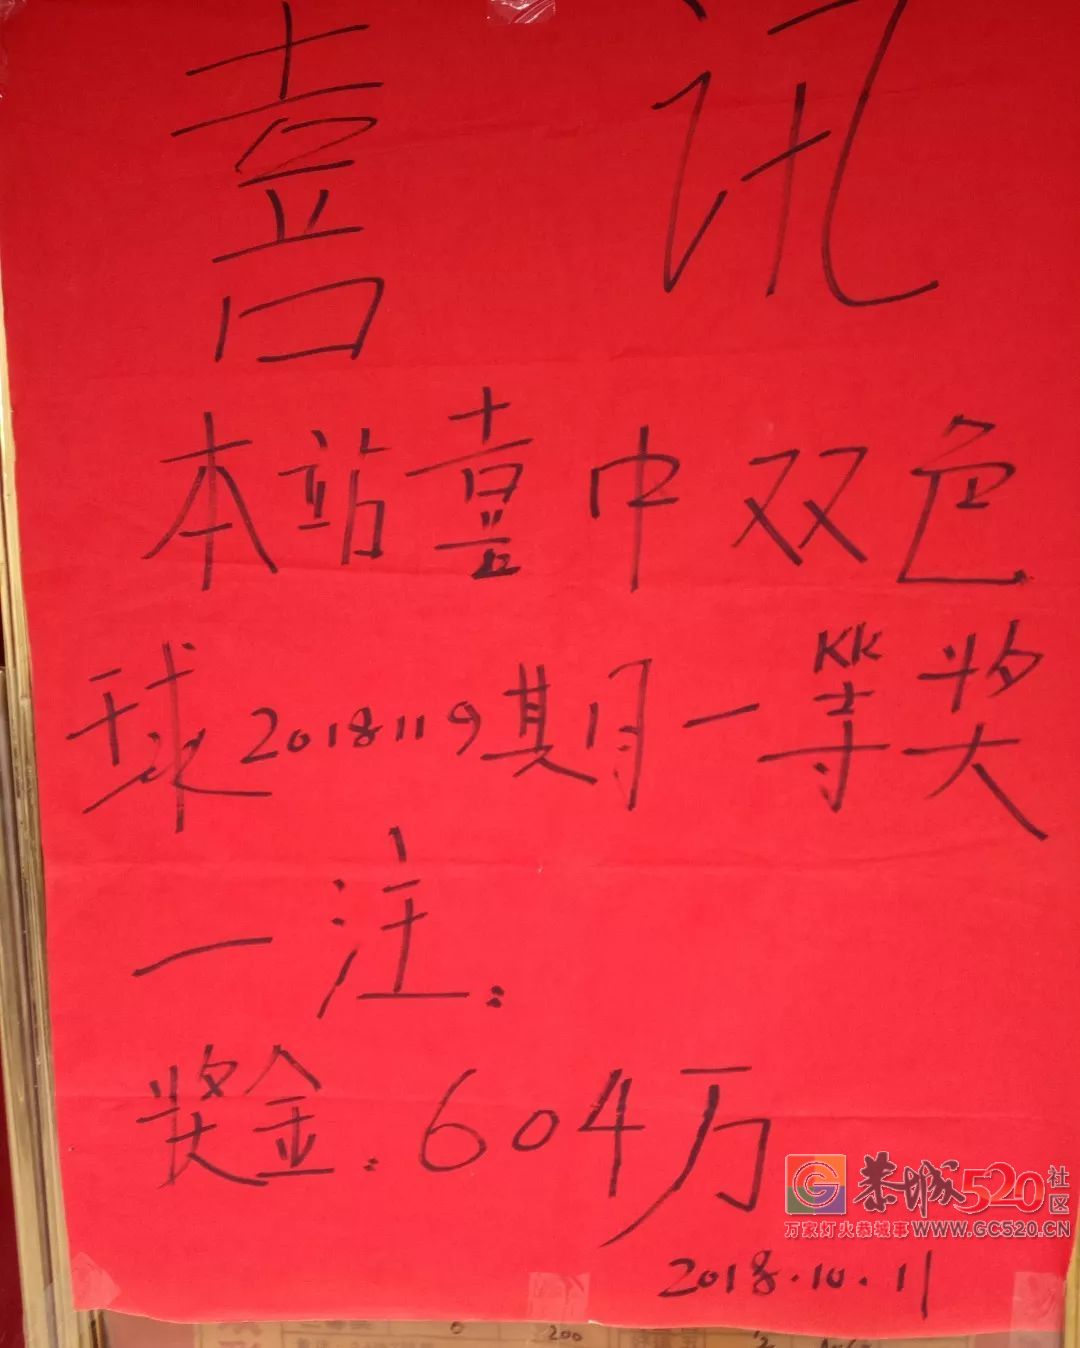 喜讯
本站喜中双色
球2018119期一等奖
一注:
奖金:604万
2018.10.11
恭城520社区
万家灯火恭城事 WWW.GC520.CN
0 200